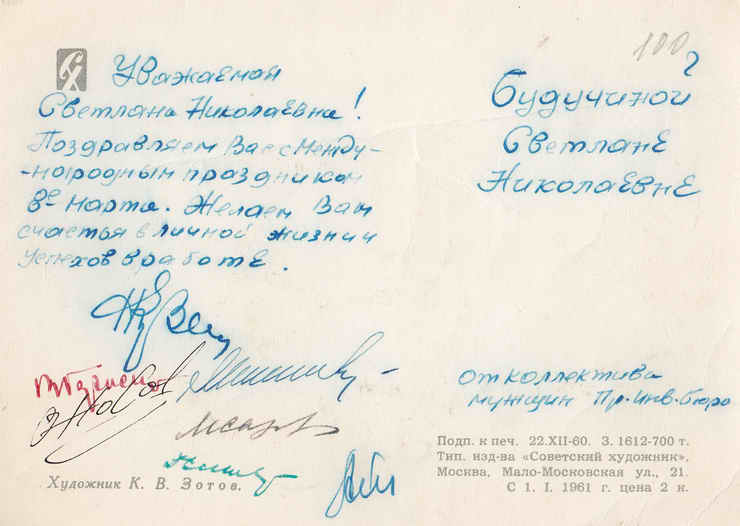 100
Уважаемая
Светлана Николаевна!
Поздравляем Вас с Между-
-народным праздником
8е марта. Желаем Вам
счастья в личной жизни и
успехов в работе.
Будучиной
Светлане
Николаевне
от коллектива
мужчин Пр.-Инв.-бюро
Подп. к печ. 22.XII-60. З. 1612-700 т.
Тип. изд-ва «Советский художник».
Москва, Мало-Московская ул., 21.
С 1. I. 1961 г. цена 2 к.
Художник К. В. Зотов.